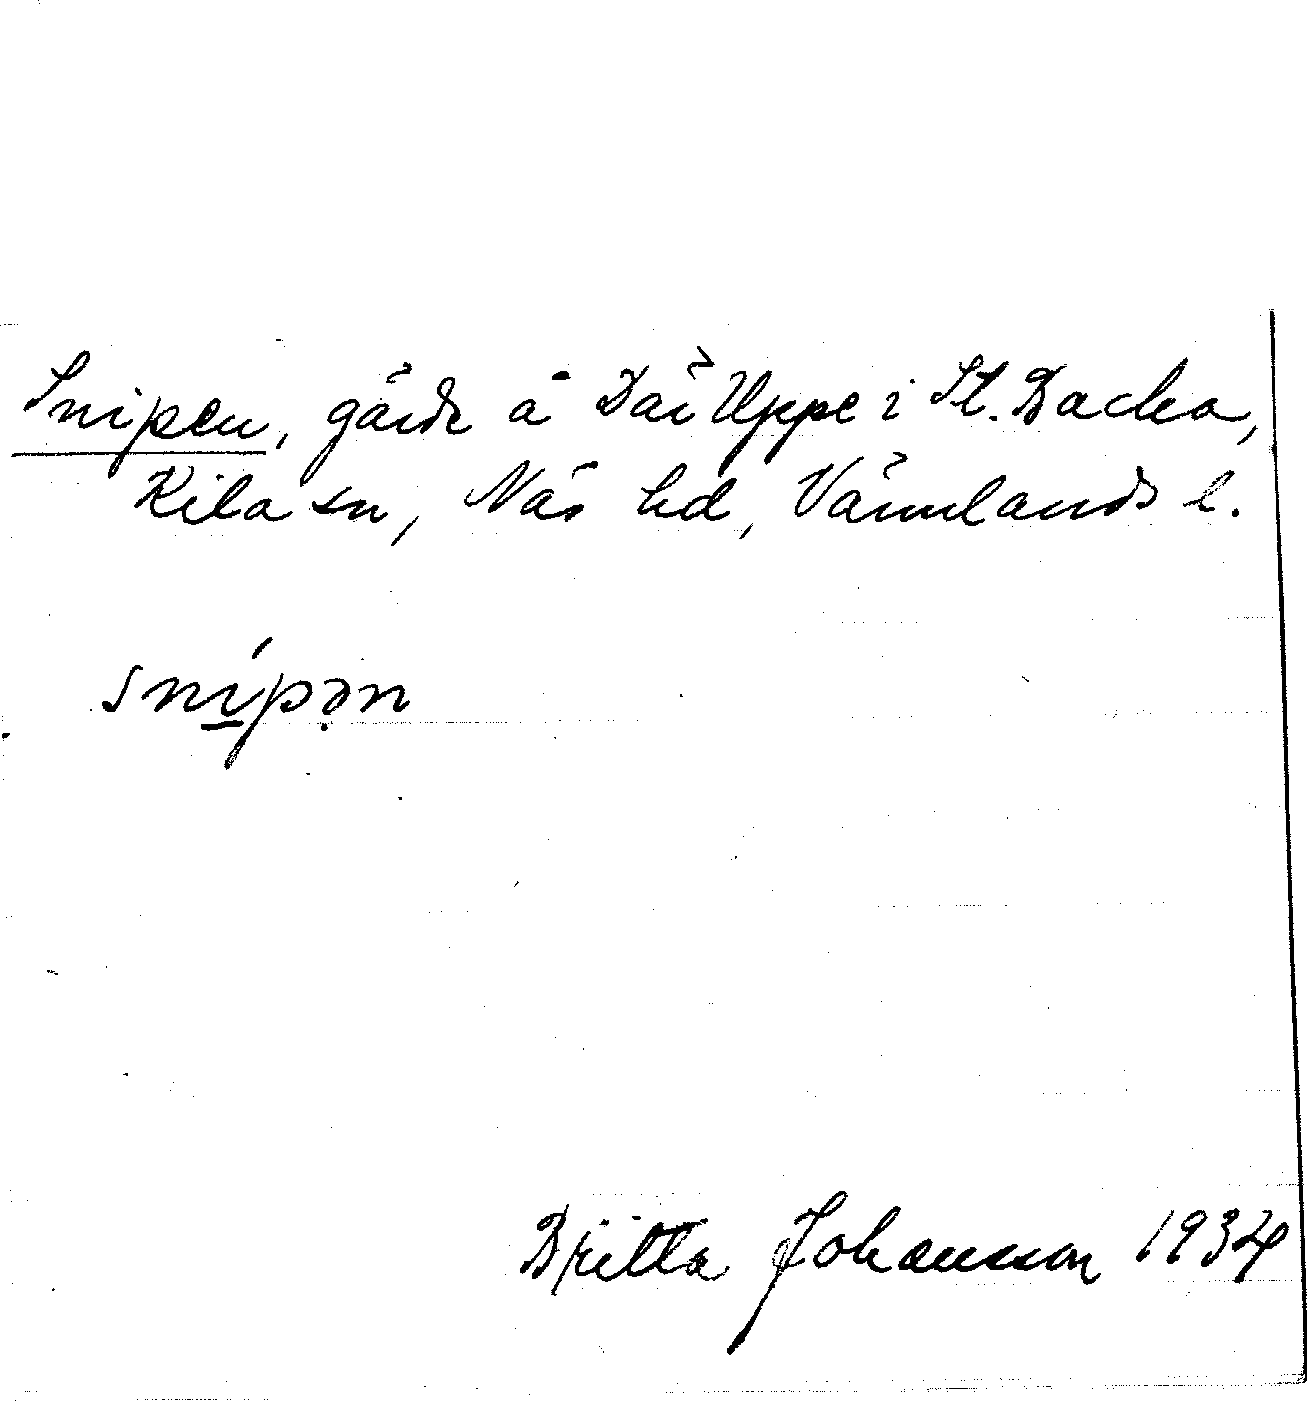 Snipen, gärde å Där Uppe i St. Backa,
Kila sn, Näs hd, Värmlands l.
snípən
Britta Johansson 1934